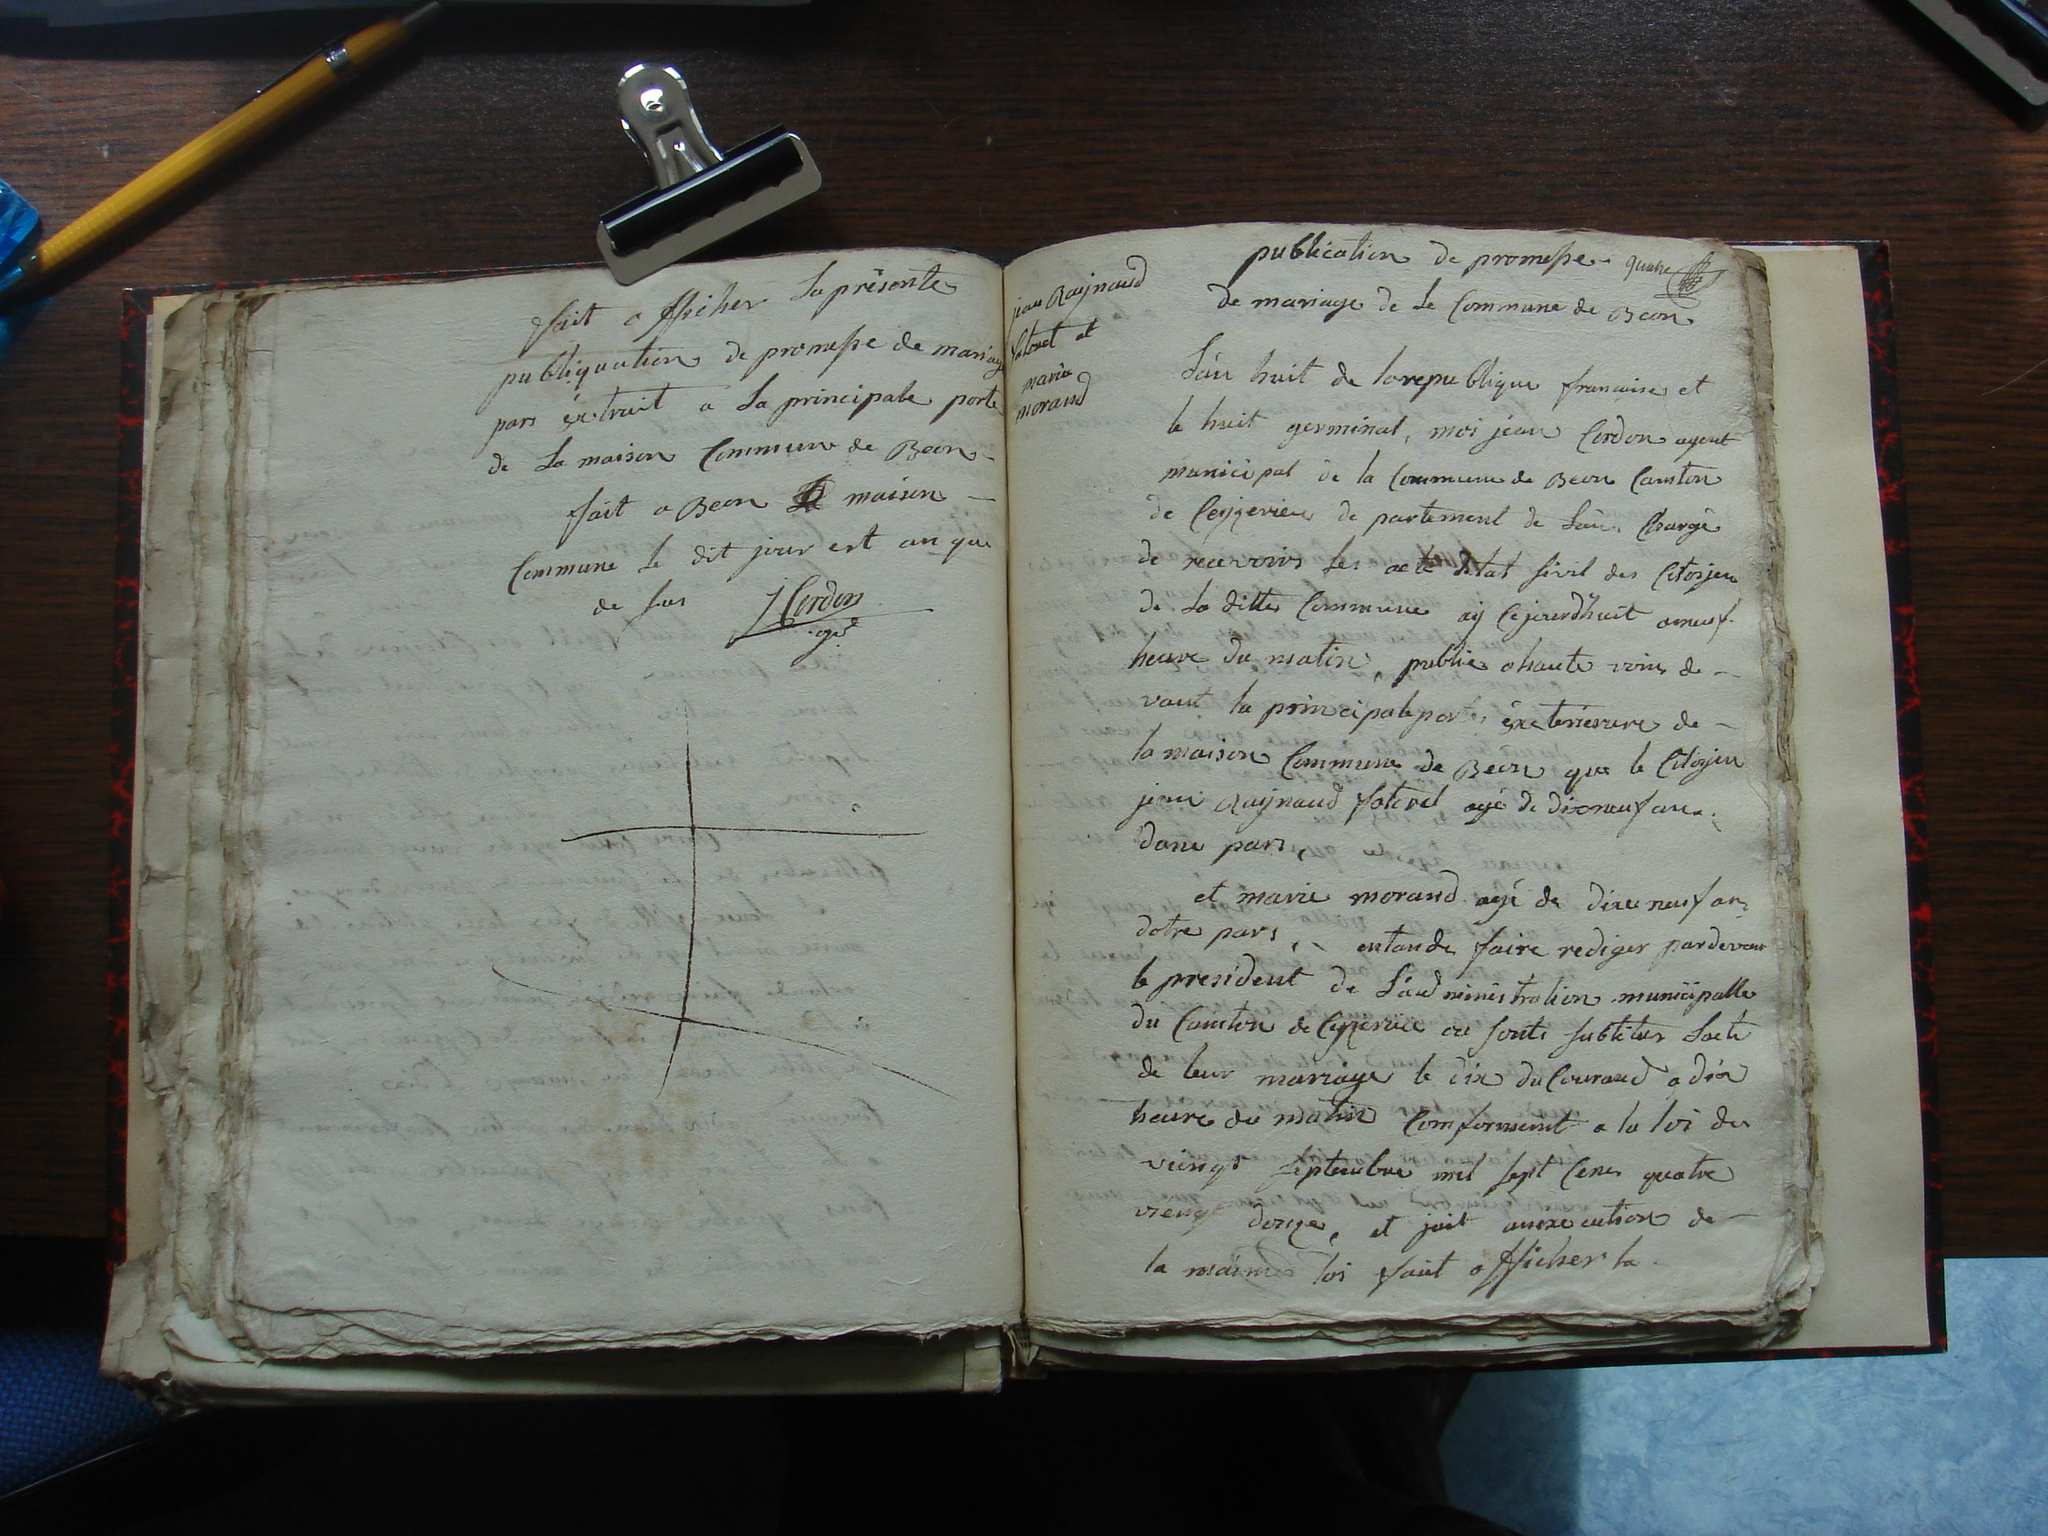 fait afficher la présente
publiquation de promesse de mariage
pars éxtrait a La principale porte
de La maison Commune de Beon
fait a Beon maison
Commune le dit jour est an que
de sus
J Cordon
agt
publication de promesse quatre
de mariage de le Commune de Beon
jean Raynaud
fatovel et
marie
morand
L'an huit de la republique francaise et
le huit germinal, moi jean Cordon agent
municipal de la Commune de Beon Canston
de Ceyzerieu de partement de L'ain Chargé
de recevoirs Les acte détat sivil des Citoyen
de La ditte Commune ay Cejourdhuit aneuf
heure du matin, publie ahaute voix de
vant la principale porte éxcterieure de
la maison Commune de Beon que le Citoyen
jean Raynaud fatovel agé de dixneuf ans
dune pars,
et marie morand agé de dixeneuf ans
dotre pars, entande faire rediger pardevant
le president de L'administration municipalle
du Canston de Ceyzerieu ou sonts subtitus Lacte
de leur mariage le dix du Courand a dix
heure du matin Comformemt a la loi du
viengt septembre mil sept Cens quatre
viengt douze, et fait anxecution de
la maime loi fait afficher la